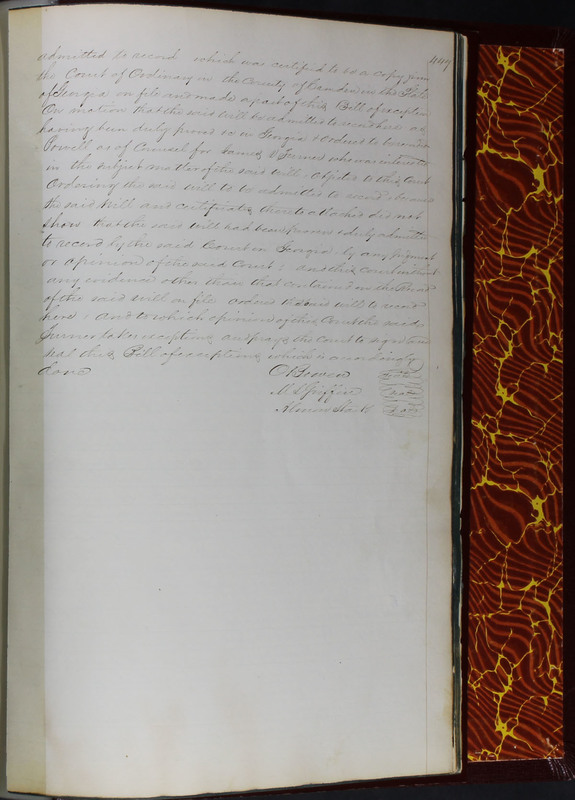 447
admitted to record which was certified to be a copy from
the Court of Ordinary in the County of Camden in the State
of Georgia on file and made a part of this Bill of exceptions
On motion that the said Will be admitted to record here as
having been duly proved &c in Georgia & Ordered to be recorded
as of Counsel for James Turner who was interested
in the subject matter of the said will, objects to this Court
Ordering the said will to be admitted to record because
the said Will and certificate thereto attached did not
show that the said will had been proved & duly admitted
to record by the said Court in Georgia by any Judgment
or opinion of the said Court; and this Court without
any evidence other than that contained in the
of the said Will on file orders the said will to record
here; And to which opinion of this Court the said
Turner takes exceptions and prays the Court to sign & 
seal this Bill of exceptions which is accordingly
done
O Bowen Seal
M S Griffin Seal
Seal